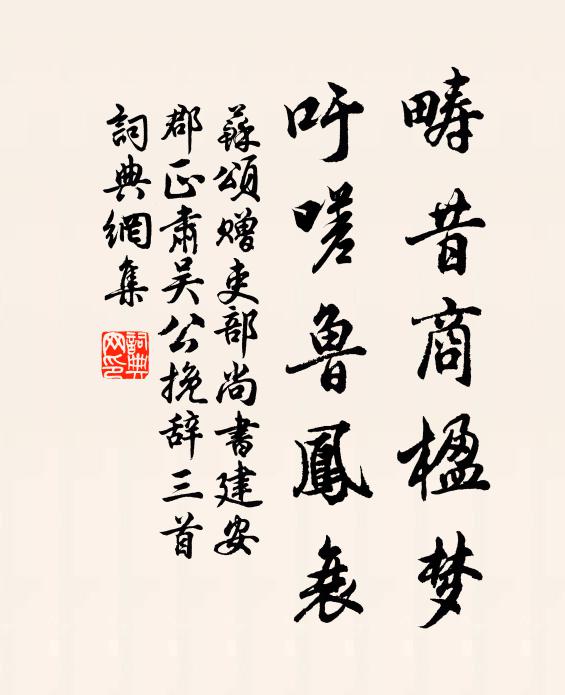 畴昔商楹梦
吁嗟鲁鳳衰
蘇頌赠吏部尚書建安
郡正肃吴公挽辞三首
詞典網集
詞典网印